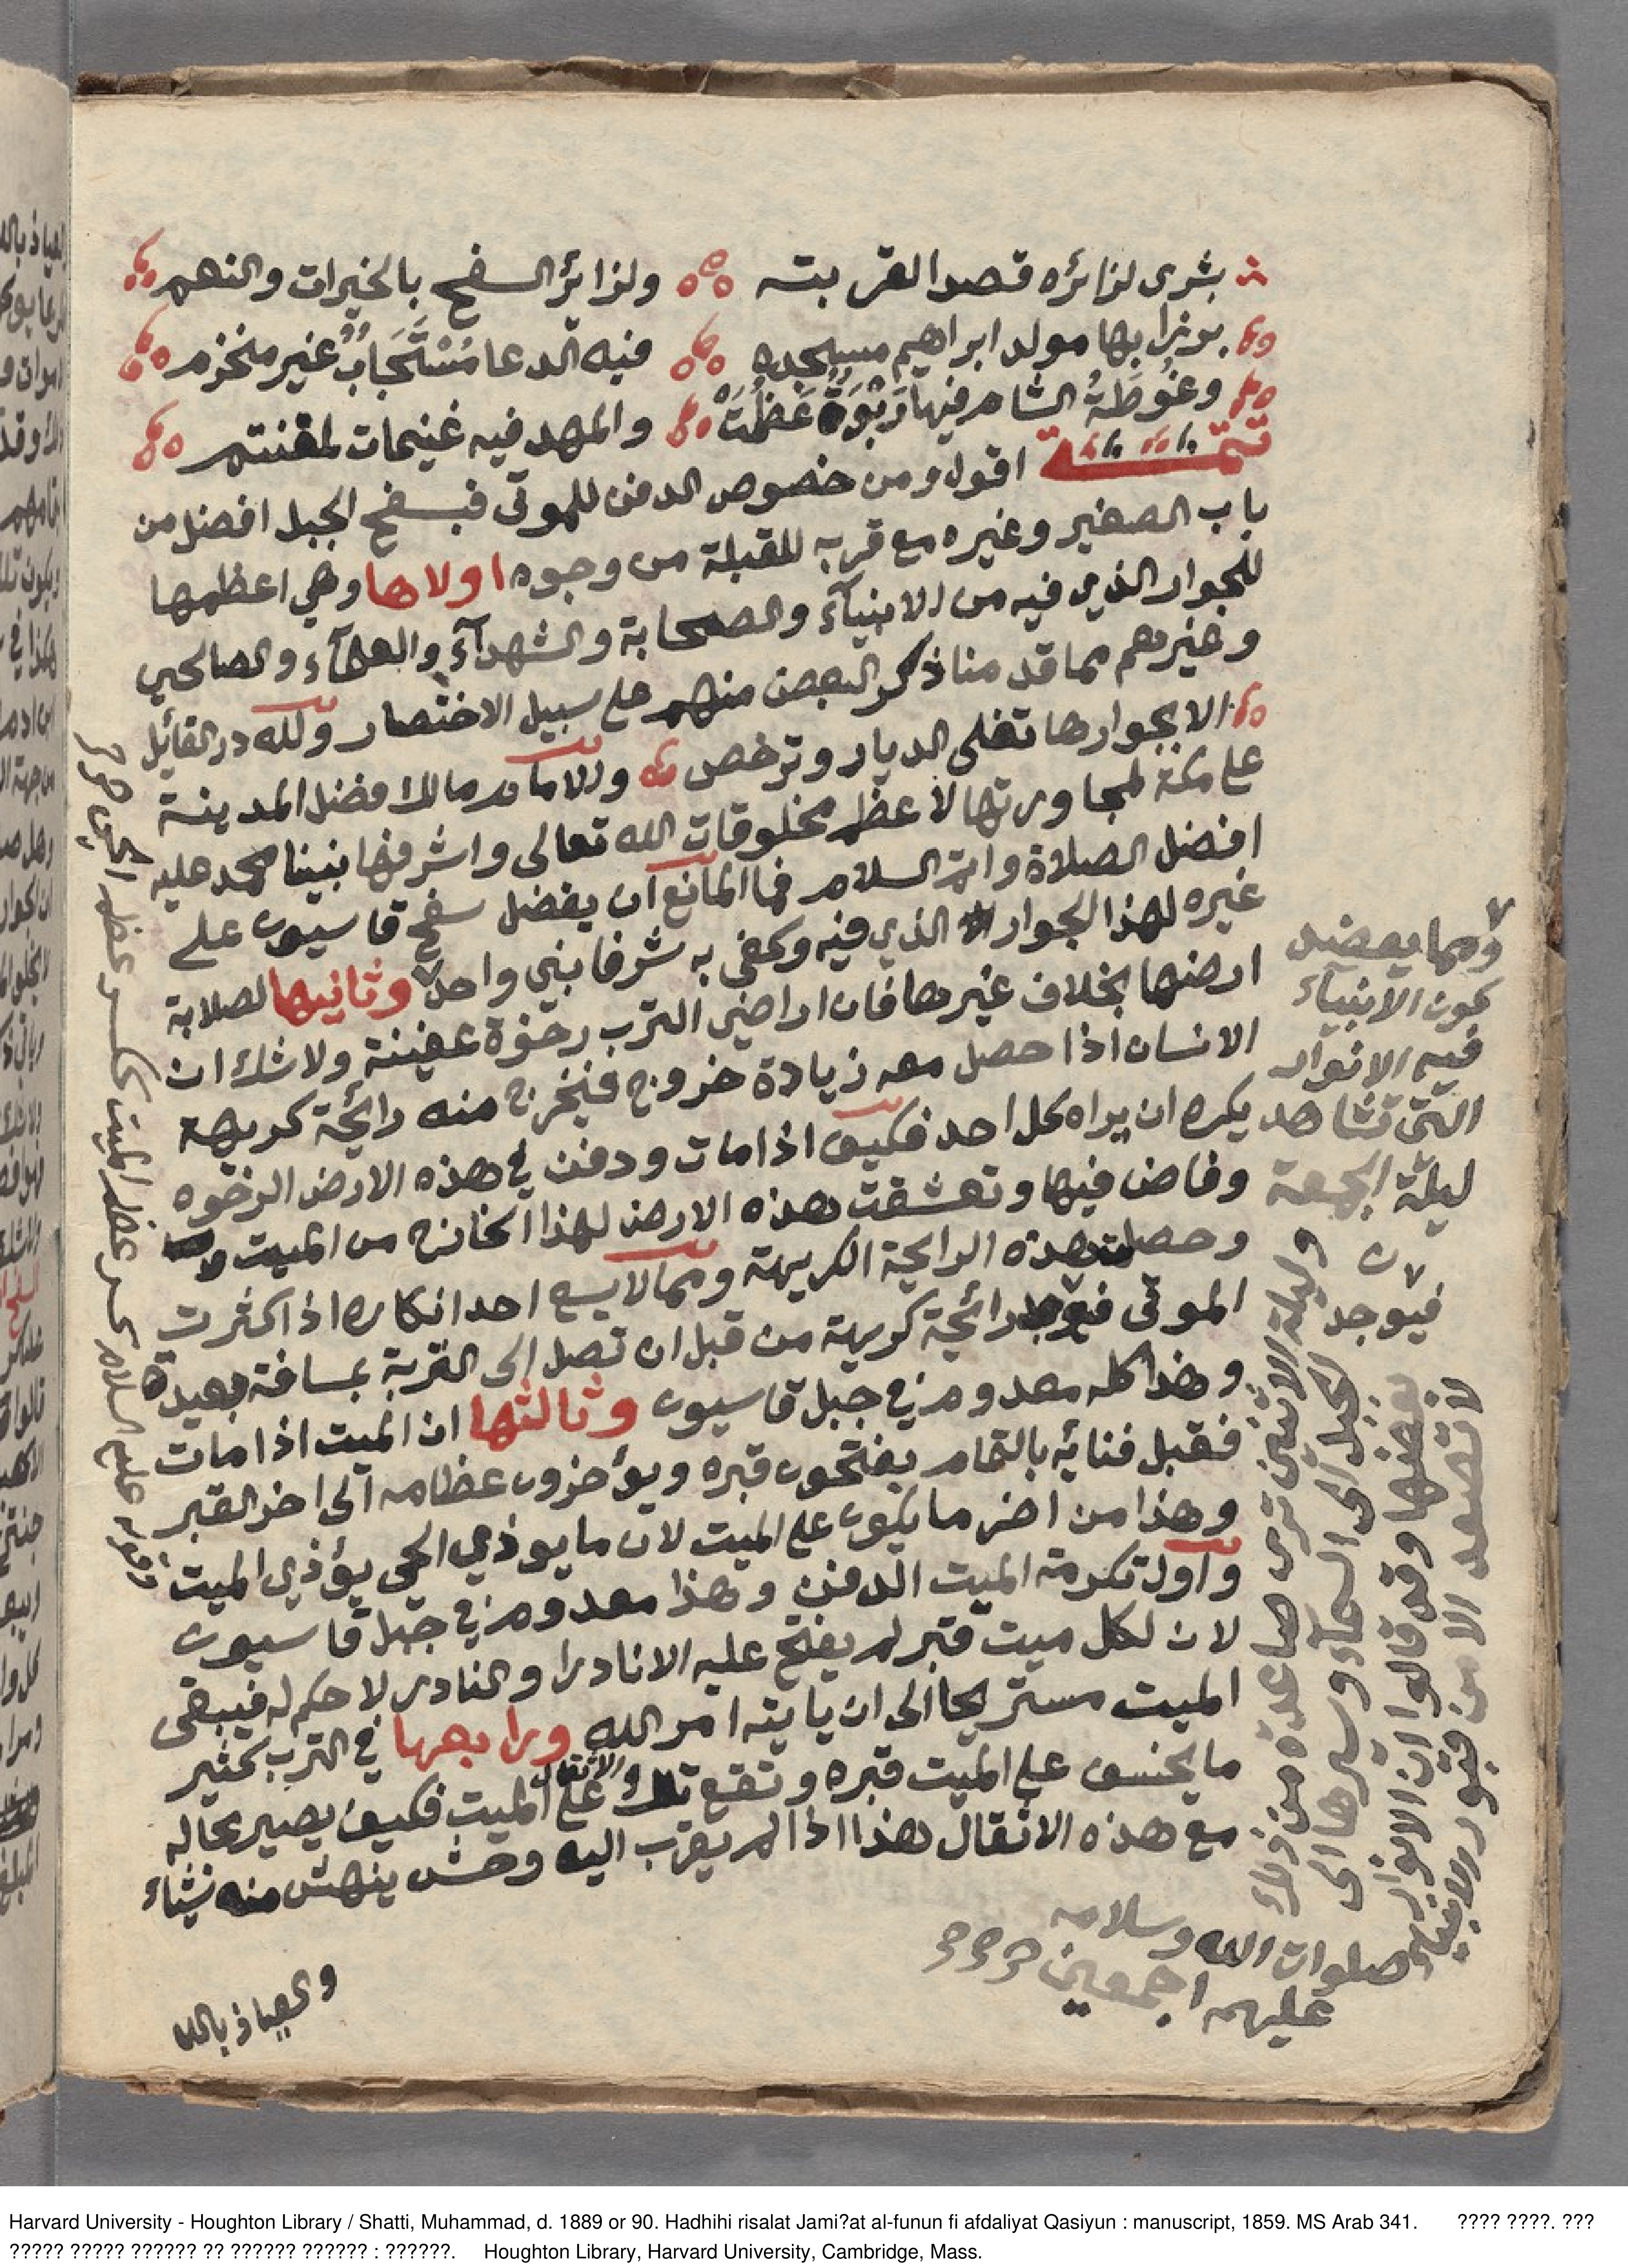 بشرى لزائره قصد القربته ولزائر السفح بالخيرات والنعم
ببرزا بها مولد ابراهيم مسجده فيه الدعا مُسْتَجَابٌ غير منخزم
وغُوطَةُ الشام فيها رَبْوَةٌ عَظُمَتْ والمهد فيه غنيمات لمغنتم
تتمة اقول ومن خصوص الدفن للموتى فبسفح الجبل افضل من
باب الصغير وغيره مع قربه للقبلة من وجوه اولاها وهي اعظمها
للجوار الذي فيه من الانبيآء والصحابة والشهدآء والعلمآء والصالحين
وغيرهم مما قدمنا ذكر البعض منهم على سبيل الاختصار ولله در القائل
الا بجوارها تغلى الديار وترخص والامام مالك افضل المدينة
على مكة لمجاورتها لاعظم مخلوقات الله تعالى واشرفها نبينا محمد عليه
افضل الصلاة واتم السلام فما المانع ان يفضل سفح قاسيون على
غيره لهذا الجوار الذي فيه وكفى به شرفا بنبي واحد وثانيها لصلابة
ارضها بخلاف غيرها فان اراضي الترب رخوة عفينة ولا شك ان
الانسان اذا حصل معه زيادة خروج فنخرج منه رائحة كريهة
يكره ان يراه كل احد فكيف اذا مات ودفن في هذه الارض الرخوه
وفاض فيها وتعشقت هذه الارض لهذا الخانزج من الميت
وحصلت هذه الرايحة الكريهة ومما لا يسع احد انكاره اذا كثرت
الموتى فيوجد رائحة كريهة من قبل ان تصل الى التربة بمسافة بعيدة
وهذا كله معدوم في جبل قاسيون وثالثها ان الميت اذا مات
فقبل فنائه بالتمام يفتحون قبره ويؤخرون عظامه الى اخر القبر
وهذا من اضر ما يكون على الميت لان ما يوذي الحي يؤذي الميت
واول تكرمة الميت الدفن وهذا معدوم في جبل قاسيون
لان لكل ميت قبر لم يفتح عليه الا نادرا والنادر لا حكم له فيبقى
الميت مستريحا الى ان ياتيه امر الله ورابعها في الترب كثير
ما يخسف على الميت قبره وتقع تلك الاثقال على الميت فكيف يصير بحاله
مع هذه الاثقال هذا اذا لم يقرب اليه وحش ينهش منه شيئاء
والعياذ بالله
ومما يعضد
كون الانبياء
فيه الانوار
التي تشاهد
ليلة الجمعة
وليلة الاثنين ترى صاعدة من ذلك
الجبل الى السمآء وسيرها الى
بعضها وقد قالوا ان الانوار
لا تصعد الا من قبور الانبياء
صلوات الله وسلامه
عليهم اجمعين
فيوجد
وقوله عليه السلام كسر عظم الميت ككسر عظم الحي